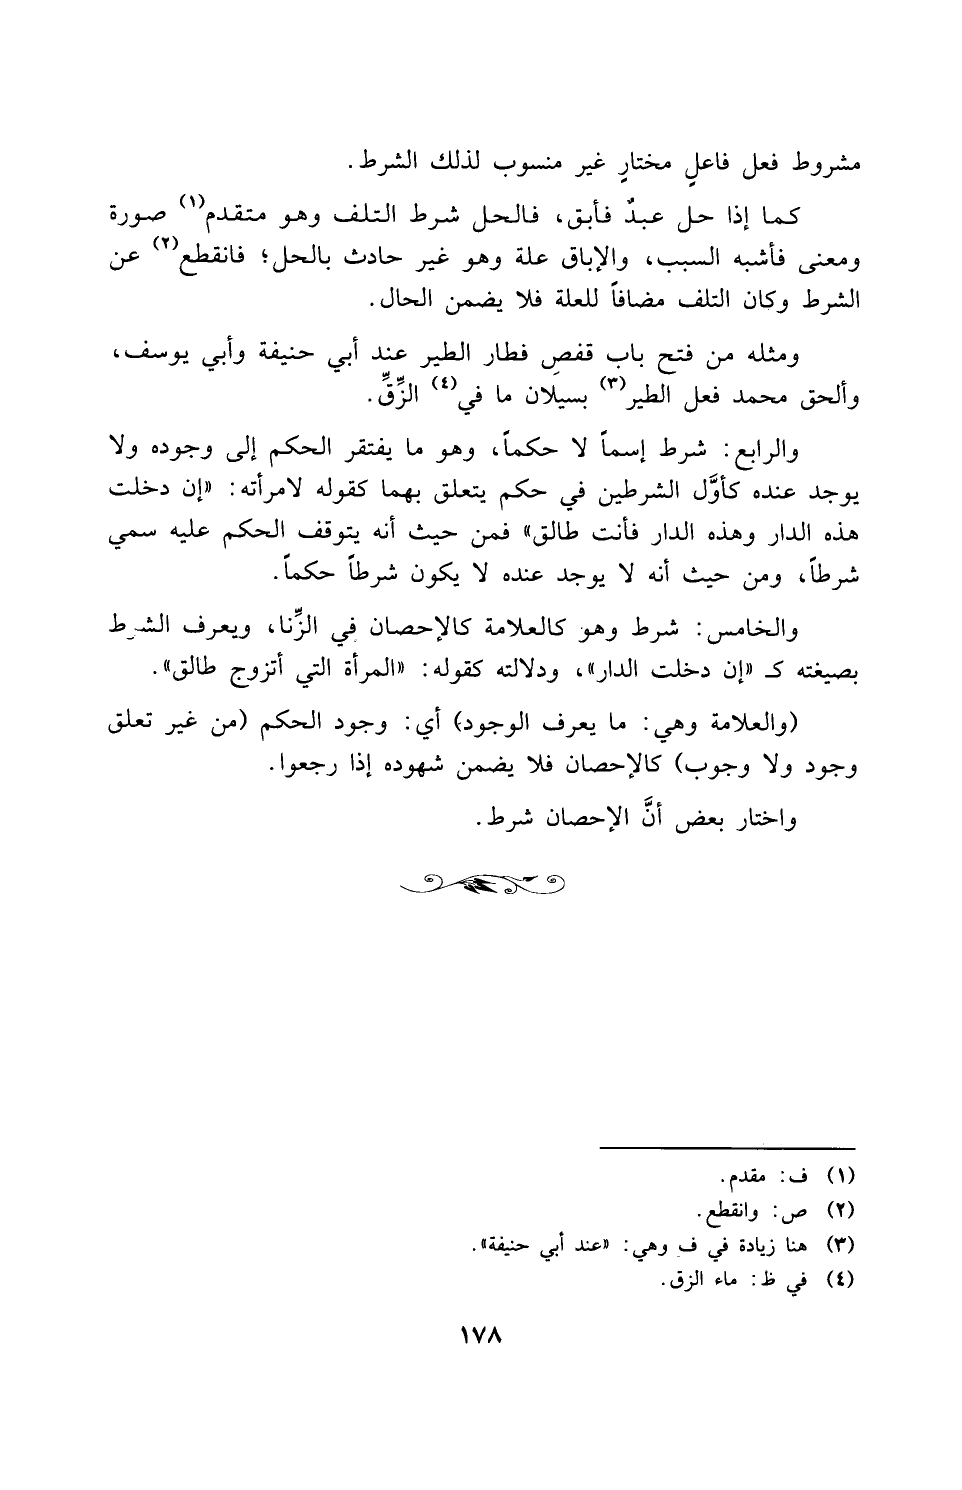 مشروط فعل فاعلٍ مختارٍ غير منسوب لذلك الشرط.
كما إذا حل عبدٌ فأبق، فالحل شرط التلف وهو متقدم(١) صورة
ومعنى فأشبه السبب، والإباق علة وهو غير حادث بالحل؛ فانقطع(٢) عن
الشرط وكان التلف مضافاً للعلة فلا يضمن الحال.
ومثله من فتح باب قفصٍ فطار الطير عند أبي حنيفة وأبي يوسف،
وألحق محمد فعل الطير(٣) بسيلان ما في(٤) الزِّقِّ.
والرابع: شرط إسماً لا حكماً، وهو ما يفتقر الحكم إلى وجوده ولا
يوجد عنده كأوَّل الشرطين في حكم يتعلق بهما كقوله لامرأته: «إن دخلت
هذه الدار وهذه الدار فأنت طالق» فمن حيث أنه يتوقف الحكم عليه سمي
شرطاً، ومن حيث أنه لا يوجد عنده لا يكون شرطاً حكماً.
والخامس: شرط وهو كالعلامة كالإحصان في الزِّنا، ويعرف الشرط
بصيغته كـ «إن دخلت الدار»، ودلالته كقوله: «المرأة التي أتزوج طالق».
(والعلامة وهي: ما يعرف الوجود) أي: وجود الحكم (من غير تعلق
وجود ولا وجوب) كالإحصان فلا يضمن شهوده إذا رجعوا.
واختار بعض أنَّ الإحصان شرط.
(١) ف: مقدم.
(٢) ص: وانقطع.
(٣) هنا زيادة في ف وهي: «عند أبي حنيفة».
(٤) في ظ: ماء الزق.
١٧٨